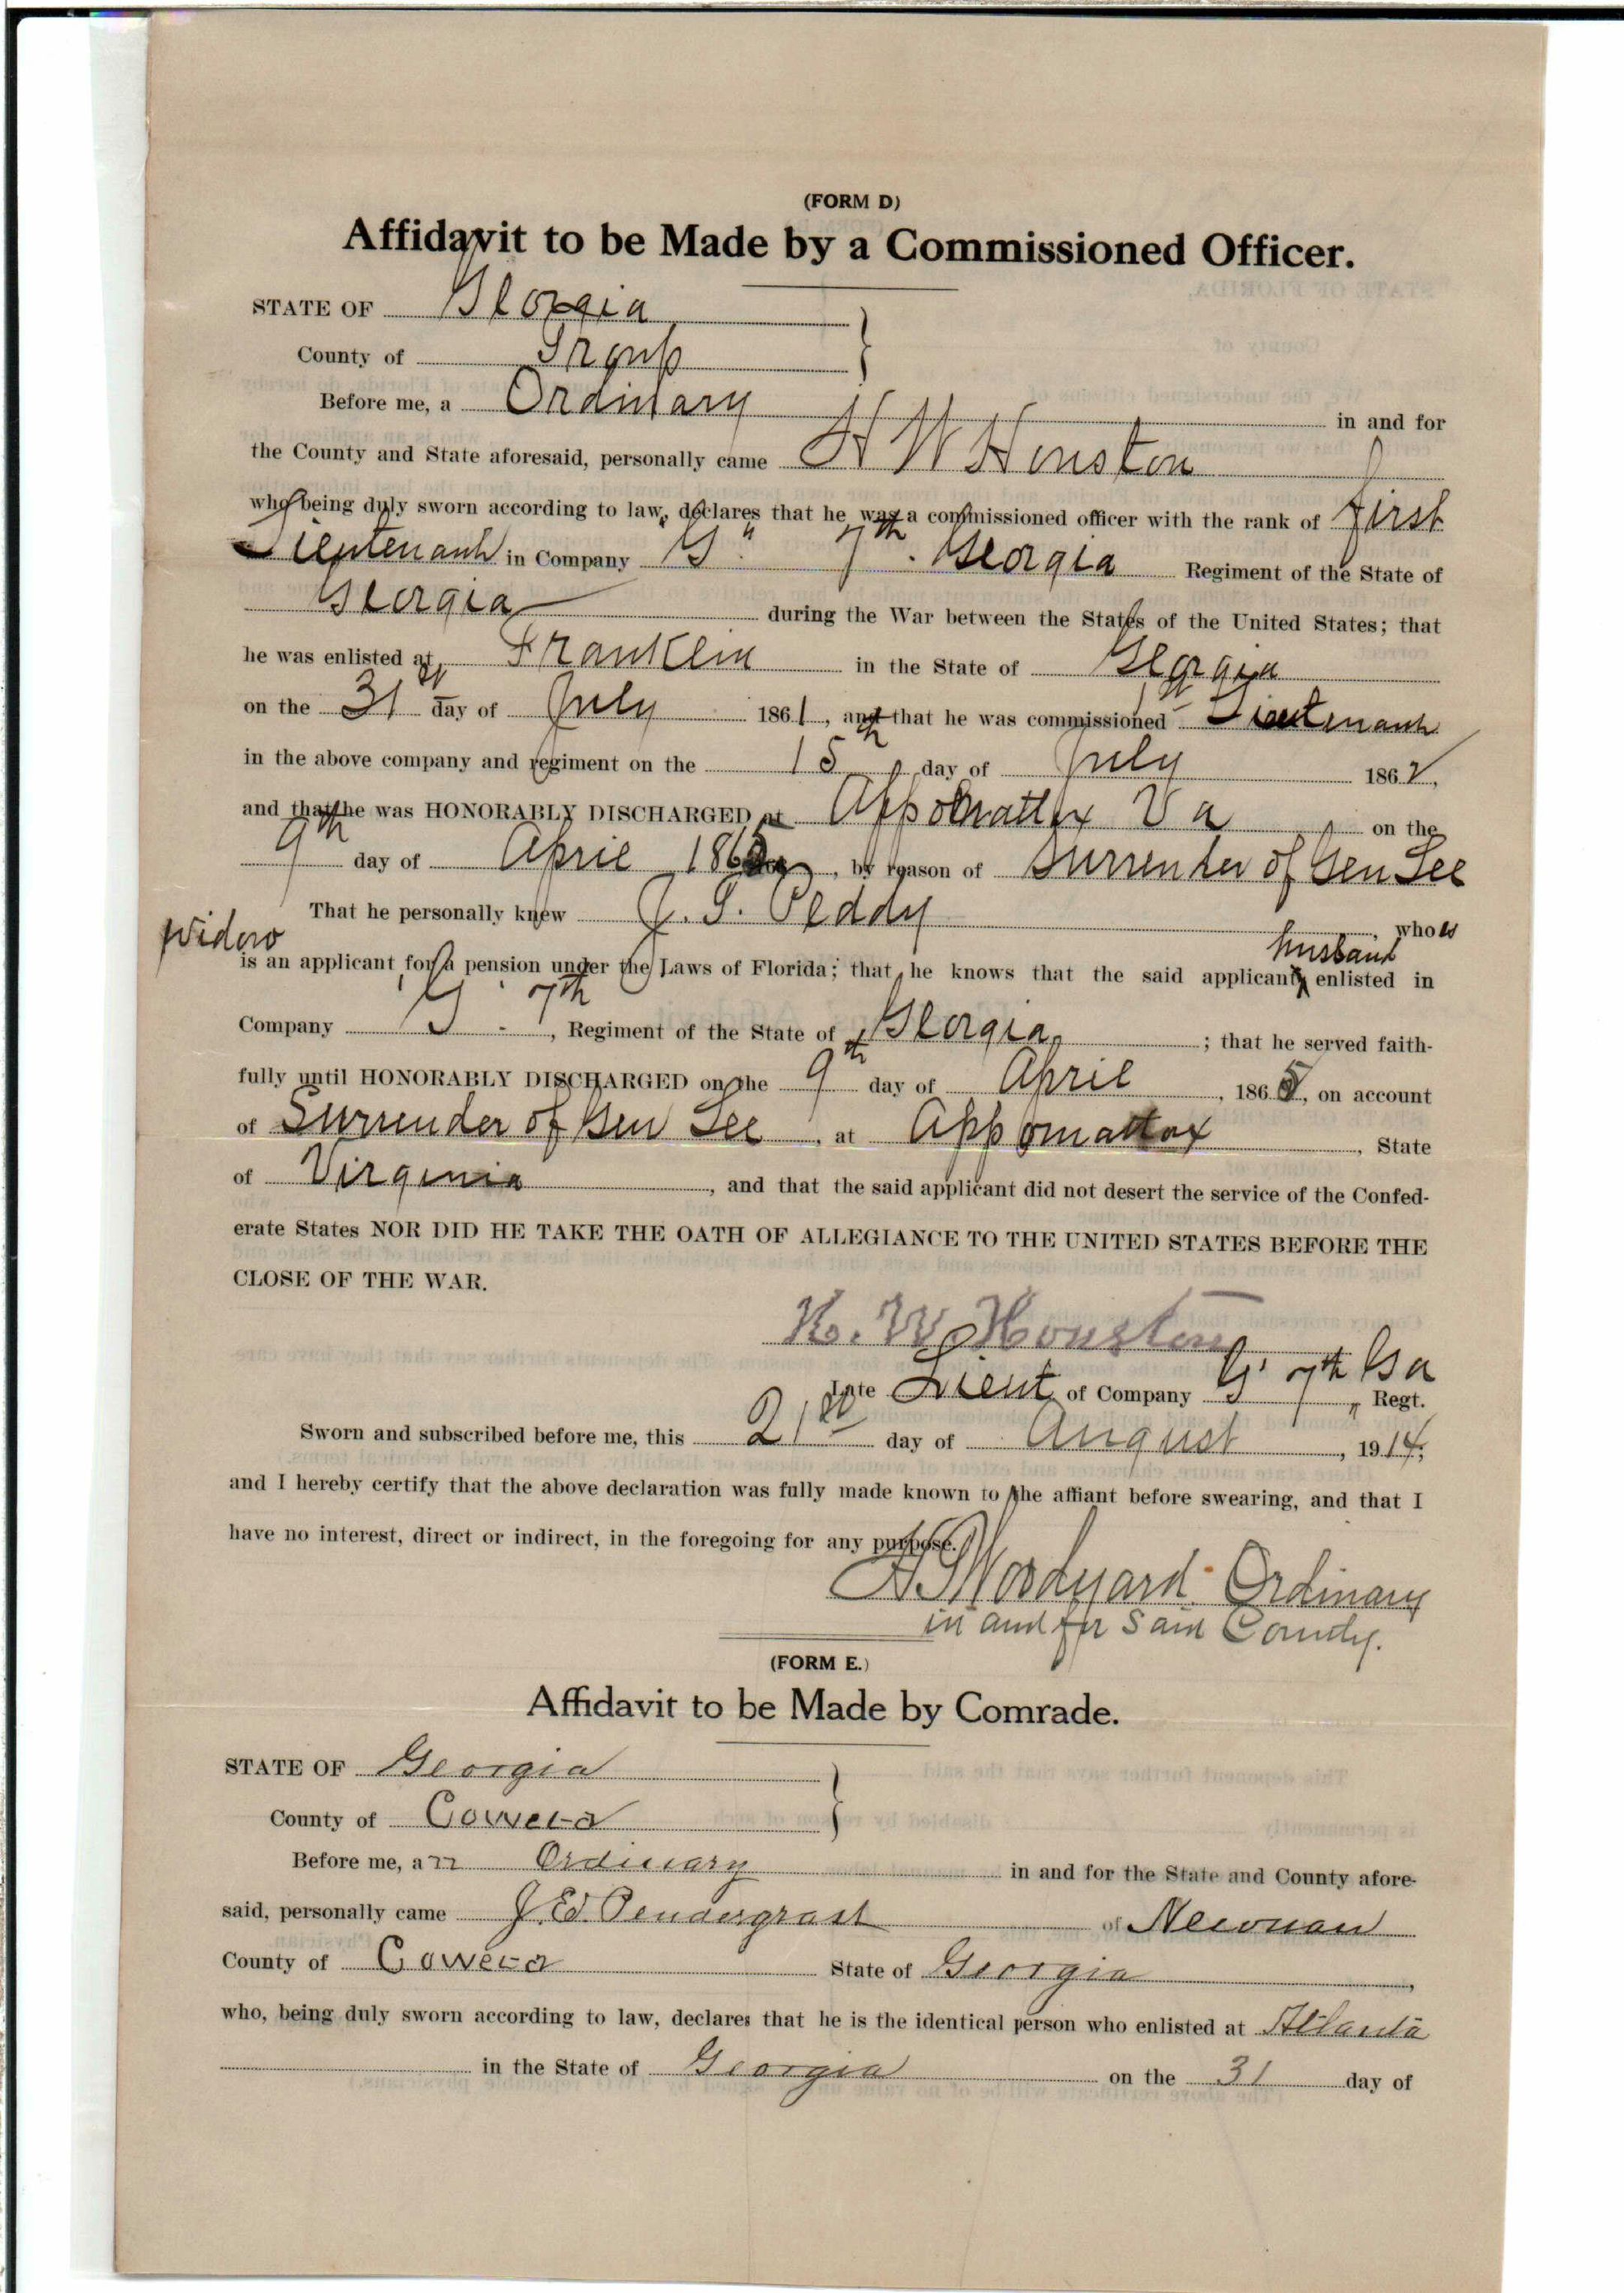 (FORM D)
Affidavit to be Made by a Commissioned Officer.
STATE OF Georgia
County of Troup
Before me, a Ordinary in and for
the County and State aforesaid, personally came H W Houston
who being duly sworn according to law, declares that he was a commissioned officer with the rank of first
Lieutenant in Company "G" 7th Georgia Regiment of the State of
Georgia during the War between the States of the United States; that
he was enlisted at Franklin in the State of Georgia
on the 31st day of July 1861, and that he was commissioned 1st Lieutenant
in the above company and regiment on the 15th day of July 1862,
and that he was HONORABLY DISCHARGED at Appomattox Va on the
9th day of April 1865, by reason of Surrender of Gen Lee
That he personally knew J. T. Peddy, whos
widow is an applicant for a pension under the Laws of Florida; that he knows that the said applicants husband enlisted in
Company "G" 7th, Regiment of the State of Georgia; that he served faith-
fully until HONORABLY DISCHARGED on the 9th day of April, 1865, on account
of Surrender of Gen Lee, at Appomattox, State
of Virginia, and that the said applicant did not desert the service of the Confed-
erate States NOR DID HE TAKE THE OATH OF ALLEGIANCE TO THE UNITED STATES BEFORE THE
CLOSE OF THE WAR.
H. W. Houston
Late Lieut of Company "G" 7th Ga Regt.
Sworn and subscribed before me, this 21st day of August, 1914;
and I hereby certify that the above declaration was fully made known to the affiant before swearing, and that I
have no interest, direct or indirect, in the foregoing for any purpose.
Woodyard Ordinary
in and for Said County.
(FORM E.)
Affidavit to be Made by Comrade.
STATE OF Georgia
County of Coweta
Before me, an Ordinary in and for the State and County afore-
said, personally came J. Ed. Pendergrast of Newnan
County of Coweta State of Georgia,
who, being duly sworn according to law, declares that he is the identical person who enlisted at Atlanta
in the State of Georgia on the 31 day of